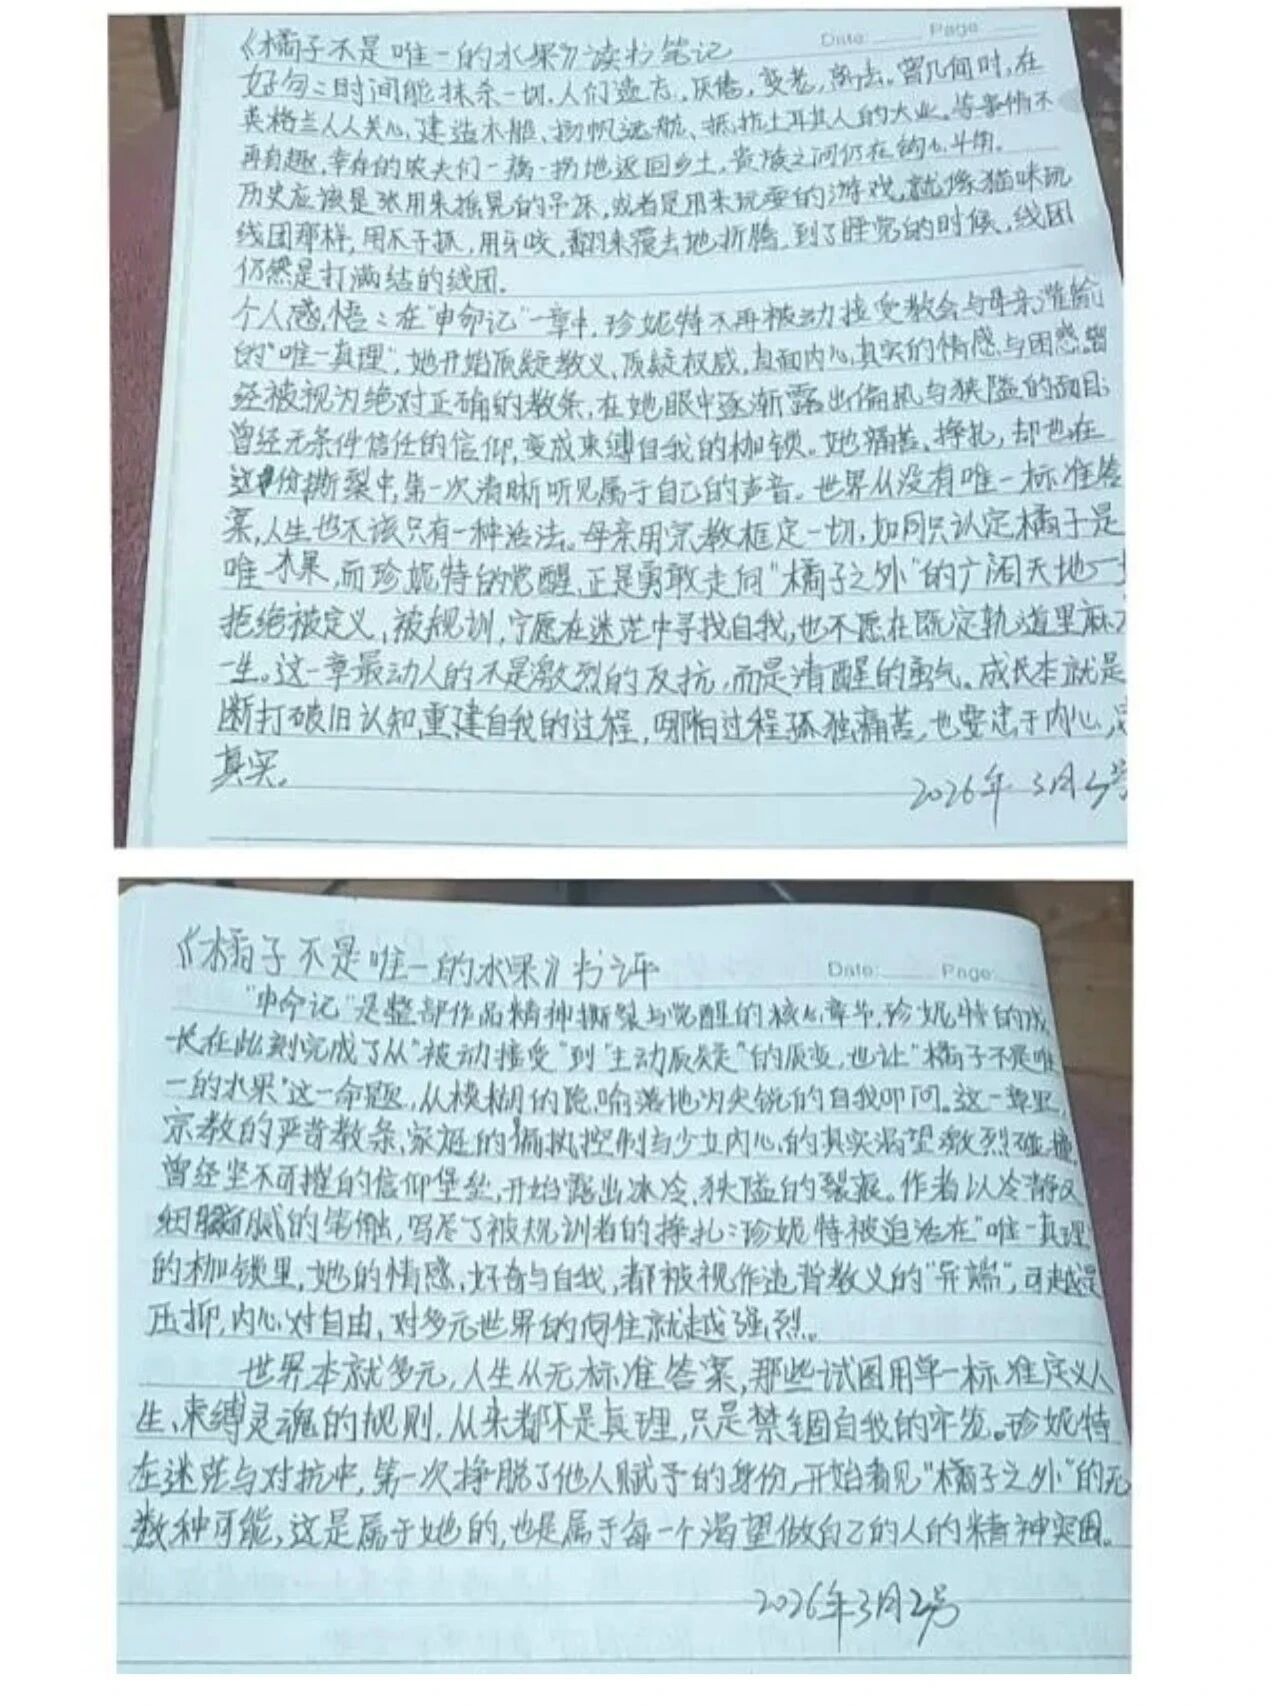 Date: Page:
《橘子不是唯一的水果》读书笔记
好句:时间能抹杀一切,人们遗忘,厌倦,变老,离去。曾几何时,在
英格兰人人关心,建造木船、扬帆远航、抵抗土耳其人的大业。等事情不
再有趣,幸存的农夫们一瘸一拐地返回乡土,贵族之间仍在钩心斗角。
历史应该是张用来摇晃的吊床,或者是用来玩耍的游戏,就像猫咪玩
线团那样,用爪子抓,用牙咬,翻来覆去地折腾,到了睡觉的时候,线团
仍然是打满结的线团。
个人感悟:在“申命记”一章中,珍妮特不再被动接受教会与母亲灌输
的“唯一真理”,她开始质疑教义、质疑权威,直面内心真实的情感与困惑。曾
经被视为绝对正确的教条,在她眼中逐渐露出偏执与狭隘的面目;
曾经无条件信任的信仰,变成束缚自我的枷锁。她痛苦、挣扎,却也在
这份撕裂中,第一次清晰听见属于自己的声音。世界从没有唯一标准答
案,人生也不该只有一种活法。母亲用宗教框定一切,如同只认定橘子是
唯一水果,而珍妮特的觉醒,正是勇敢走向“橘子之外”的广阔天地一
拒绝被定义、被规训,宁愿在迷茫中寻找自我,也不愿在既定轨道里麻
一生。这一章最动人的不是激烈的反抗,而是清醒的勇气。成长本就是
断打破旧认知,重建自我的过程,哪怕过程孤独痛苦,也要忠于内心,
真实。
2026年3月2号
Date: Page:
《橘子不是唯一的水果》书评
“申命记”是整部作品精神撕裂与觉醒的核心章节,珍妮特的成
长在此刻完成了从“被动接受”到“主动质疑”的质变,也让“橘子不是唯
一的水果”这一命题,从模糊的隐喻落地为尖锐的自我叩问。这一章里,
宗教的严苛教条、家庭的偏执控制与少女内心的真实渴望激烈碰撞,
曾经坚不可摧的信仰堡垒,开始露出冰冷、狭隘的裂痕。作者以冷静又
细腻的笔触,写尽了被规训者的挣扎:珍妮特被迫活在“唯一真理”
的枷锁里,她的情感,好奇与自我,都被视作违背教义的“异端”,可越是
压抑,内心对自由,对多元世界的向往就越强烈。
世界本就多元,人生从无标准答案,那些试图用单一标准定义人
生、束缚灵魂的规则,从来都不是真理,只是禁锢自我的牢笼。珍妮特
在迷茫与对抗中,第一次挣脱了他人赋予的身份,开始看见“橘子之外”的无
数种可能,这是属于她的,也是属于每一个渴望做自己的人的精神突围。
2026年3月2号